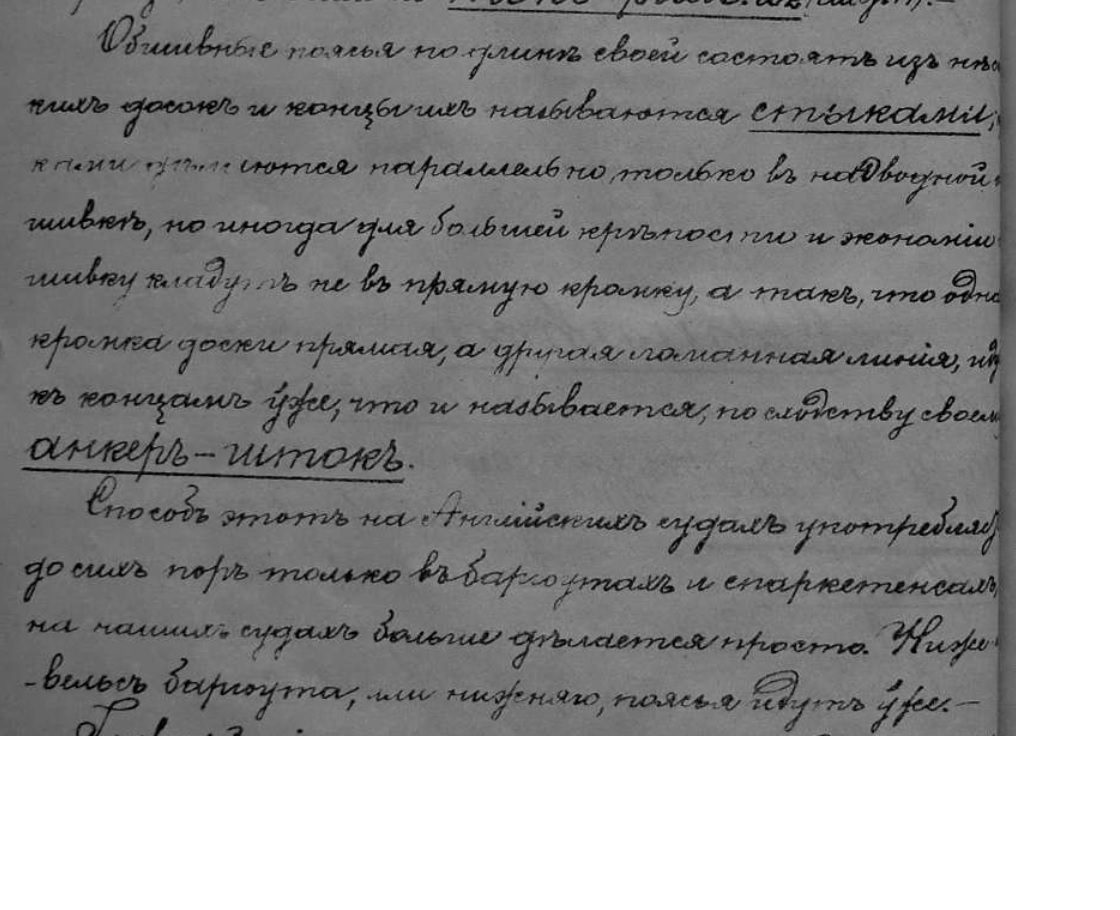 Обшивные поясья по длинѣ своей состоятъ изъ
кихъ досокъ и концы ихъ называются стыками;
параллельно только въ надводной
шивкѣ, но иногда для большей крѣпости и экономіи
шивку кладутъ не въ прямую кромку, а такъ, что одна
кромка доски прямая, а другая ломанная линія,
къ концамъ у́же, что и называется, по сходству своему
анкеръ-штокъ.
Способъ этотъ на Англійскихъ судахъ
до сихъ поръ только въ баргоутахъ и
на нашихъ судахъ больше дѣлается просто. Ниже
-вельсъ баргоута, или нижняго, поясья идутъ у́же.-